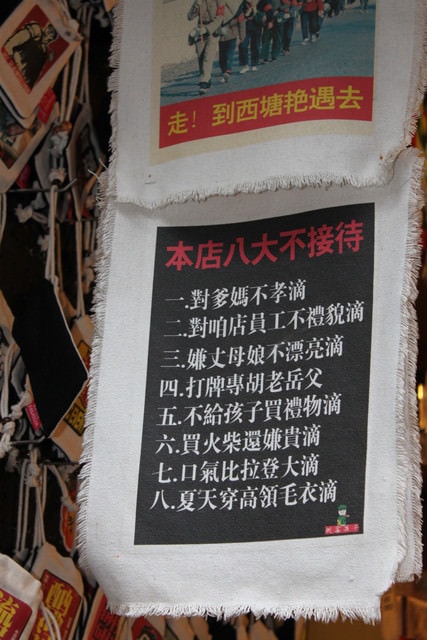 走！到西塘艳遇去
本店八大不接待
一.對爹媽不孝滴
二.對咱店員工不禮貌滴
三.嫌丈母娘不漂亮滴
四.打牌專胡老岳父
五.不給孩子買禮物滴
六.買火柴還嫌貴滴
七.口氣比拉登大滴
八.夏天穿高領毛衣滴